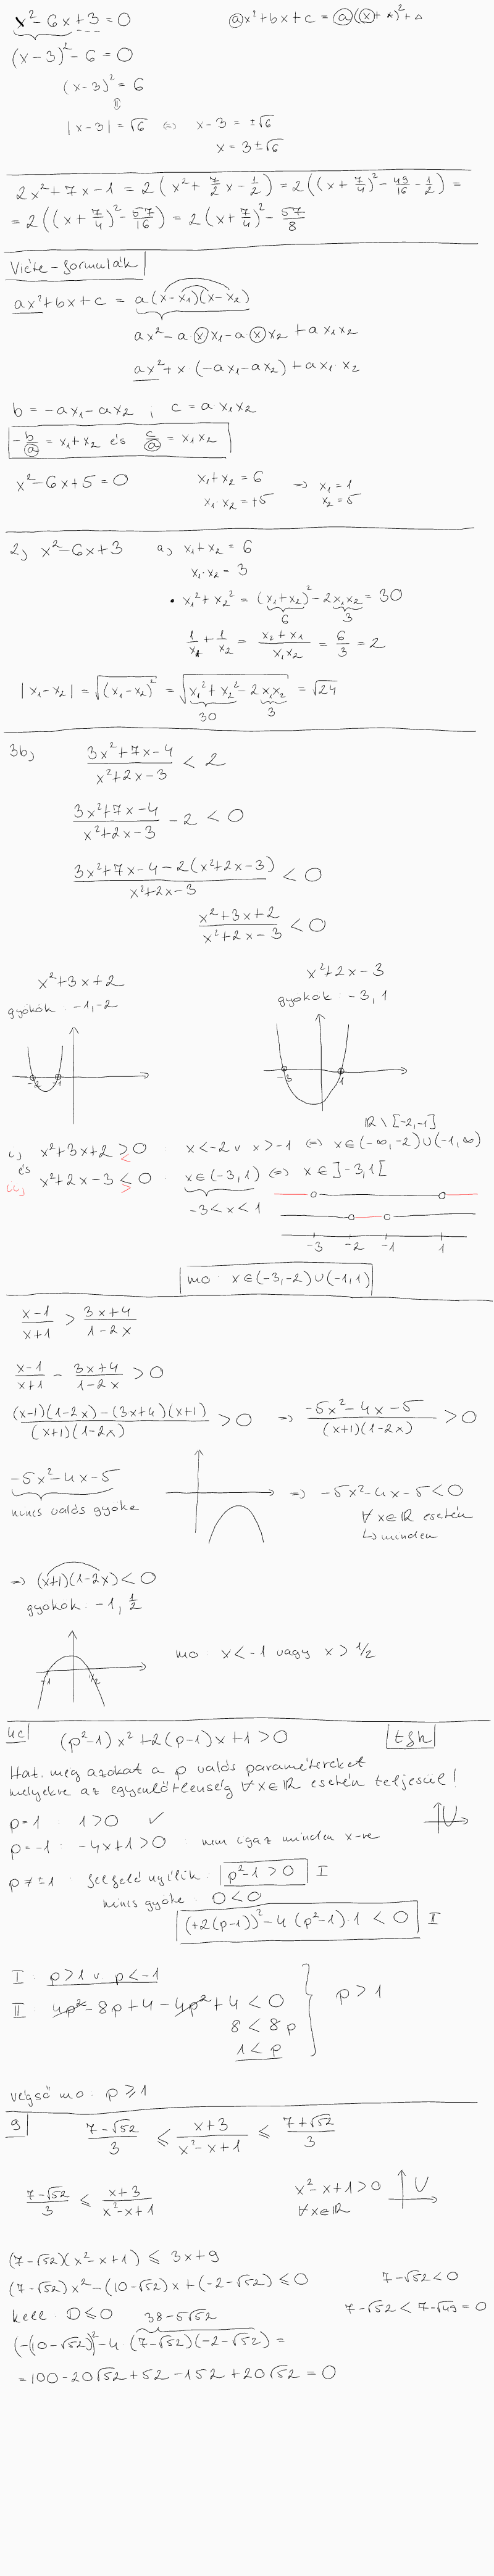 x² - 6x + 3 = 0
ax² + bx + c = a(x + *)² + △
(x-3)² - 6 = 0
(x-3)² = 6
⇕
|x-3| = √6 ⇔ x-3 = ±√6
x = 3 ± √6
2x² + 7x - 1 = 2(x² + 7/2 x - 1/2) = 2((x + 7/4)² - 49/16 - 1/2) =
= 2((x + 7/4)² - 57/16) = 2(x + 7/4)² - 57/8
Viéte-formulák
ax² + bx + c = a(x - x₁)(x - x₂)
ax² - a x x₁ - a x x₂ + a x₁x₂
ax² + x · (-ax₁ - ax₂) + ax₁ x₂
b = -ax₁ - ax₂ , c = a x₁x₂
-b/a = x₁ + x₂ és c/a = x₁ x₂
x² - 6x + 5 = 0 x₁ + x₂ = 6 ⇒ x₁ = 1
x₁ · x₂ = +5 x₂ = 5
2) x² - 6x + 3 a) x₁ + x₂ = 6
x₁ · x₂ = 3
• x₁² + x₂² = (x₁ + x₂)² - 2x₁x₂ = 30
6 3
1/x₁ + 1/x₂ = (x₂ + x₁)/(x₁x₂) = 6/3 = 2
|x₁ - x₂| = √(x₁ - x₂)² = √(x₁² + x₂² - 2x₁x₂) = √24
30 3
3b) (3x² + 7x - 4)/(x² + 2x - 3) < 2
(3x² + 7x - 4)/(x² + 2x - 3) - 2 < 0
(3x² + 7x - 4 - 2(x² + 2x - 3))/(x² + 2x - 3) < 0
(x² + 3x + 2)/(x² + 2x - 3) < 0
x² + 3x + 2 x² + 2x - 3
gyökök: -1, -2 gyökök: -3, 1
-2 -1 -3 1
ℝ \ [-2, -1]
i) x² + 3x + 2 > 0 x < -2 ∨ x > -1 ⇔ x ∈ (-∞, -2) ∪ (-1, ∞)
<
és
ii) x² + 2x - 3 < 0 x ∈ (-3, 1) ⇔ x ∈ ]-3, 1[
>
-3 < x < 1
-3 -2 -1 1
mo: x ∈ (-3, -2) ∪ (-1, 1)
(x-1)/(x+1) > (3x+4)/(1-2x)
(x-1)/(x+1) - (3x+4)/(1-2x) > 0
((x-1)(1-2x) - (3x+4)(x+1))/((x+1)(1-2x)) > 0 ⇒ (-5x² - 4x - 5)/((x+1)(1-2x)) > 0
-5x² - 4x - 5 ⇒ -5x² - 4x - 5 < 0
nincs valós gyöke ∀ x ∈ ℝ esetén
↳ minden
⇒ (x+1)(1-2x) < 0
gyökök: -1, 1/2
mo: x < -1 vagy x > 1/2
-1 1/2
4c (p² - 1)x² + 2(p-1)x + 1 > 0 tfh
Hat. meg azokat a p valós paramétereket
melyekre az egyenlőtlenség ∀ x ∈ ℝ esetén teljesül!
p = 1 : 1 > 0 ✓
p = -1 : -4x + 1 > 0 : nem igaz minden x-re
p ≠ ±1 : felfelé nyílik: p² - 1 > 0 I
nincs gyöke: D < 0
(+2(p-1))² - 4(p² - 1)·1 < 0 II
I : p > 1 ∨ p < -1
II : 4p² - 8p + 4 - 4p² + 4 < 0 } p > 1
8 < 8p
1 < p
végső mo: p ≥ 1
9 (7 - √52)/3 ≤ (x+3)/(x² - x + 1) ≤ (7 + √52)/3
(7 - √52)/3 ≤ (x+3)/(x² - x + 1) x² - x + 1 > 0
∀ x ∈ ℝ
(7 - √52)(x² - x + 1) ≤ 3x + 9
(7 - √52)x² - (10 - √52)x + (-2 - √52) ≤ 0 7 - √52 < 0
kell: D ≤ 0 38 - 5√52 7 - √52 < 7 - √49 = 0
(-(10 - √52))² - 4 · (7 - √52)(-2 - √52) =
= 100 - 20√52 + 52 - 152 + 20√52 = 0